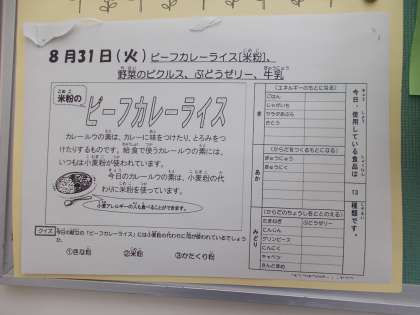 8月31日(火) ビーフカレーライス[米粉]、
野菜のピクルス、ぶどうゼリー、牛乳
米粉の
ビーフカレーライス
カレールウの素は、カレーに味をつけたり、とろみをつ
けたりするものです。給食で使うカレールウの素には、
いつも小麦粉が使われています。
今日のカレールウの素は、小麦粉の代
わりに米粉を使っています。
小麦アレルギーの人も食べることができます。
クイズ
今日の献立の「ビーフカレーライス」には小麦粉の代わりに何が使われているでしょう
か。
①きな粉 ②米粉 ③かたくり粉
き
(エネルギーのもとになる)
ごはん
じゃがいも
サラダあぶら
さとう
あか
(からだをつくるもとになる)
ぎゅうにゅう
ぎゅうにく
みどり
(からだのちょうしをととのえる)
たまねぎ ぶどうゼリー
にんじん
グリンピース
にんにく
キャベツ
きんときまめ
今日、使用している食品は
13
種類です。